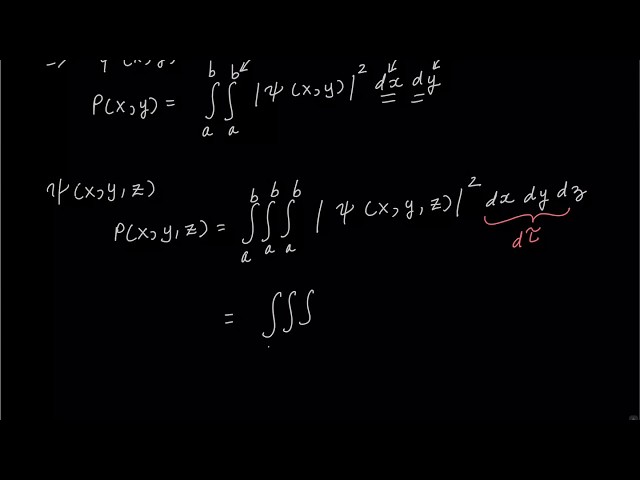 => ψ(x,y)
P(x,y) = ∫_a^b ∫_a^b |ψ(x,y)|² dx dy
ψ(x,y,z)
P(x,y,z) = ∫_a^b ∫_a^b ∫_a^b |ψ(x,y,z)|² dx dy dz
dτ
= ∫∫∫